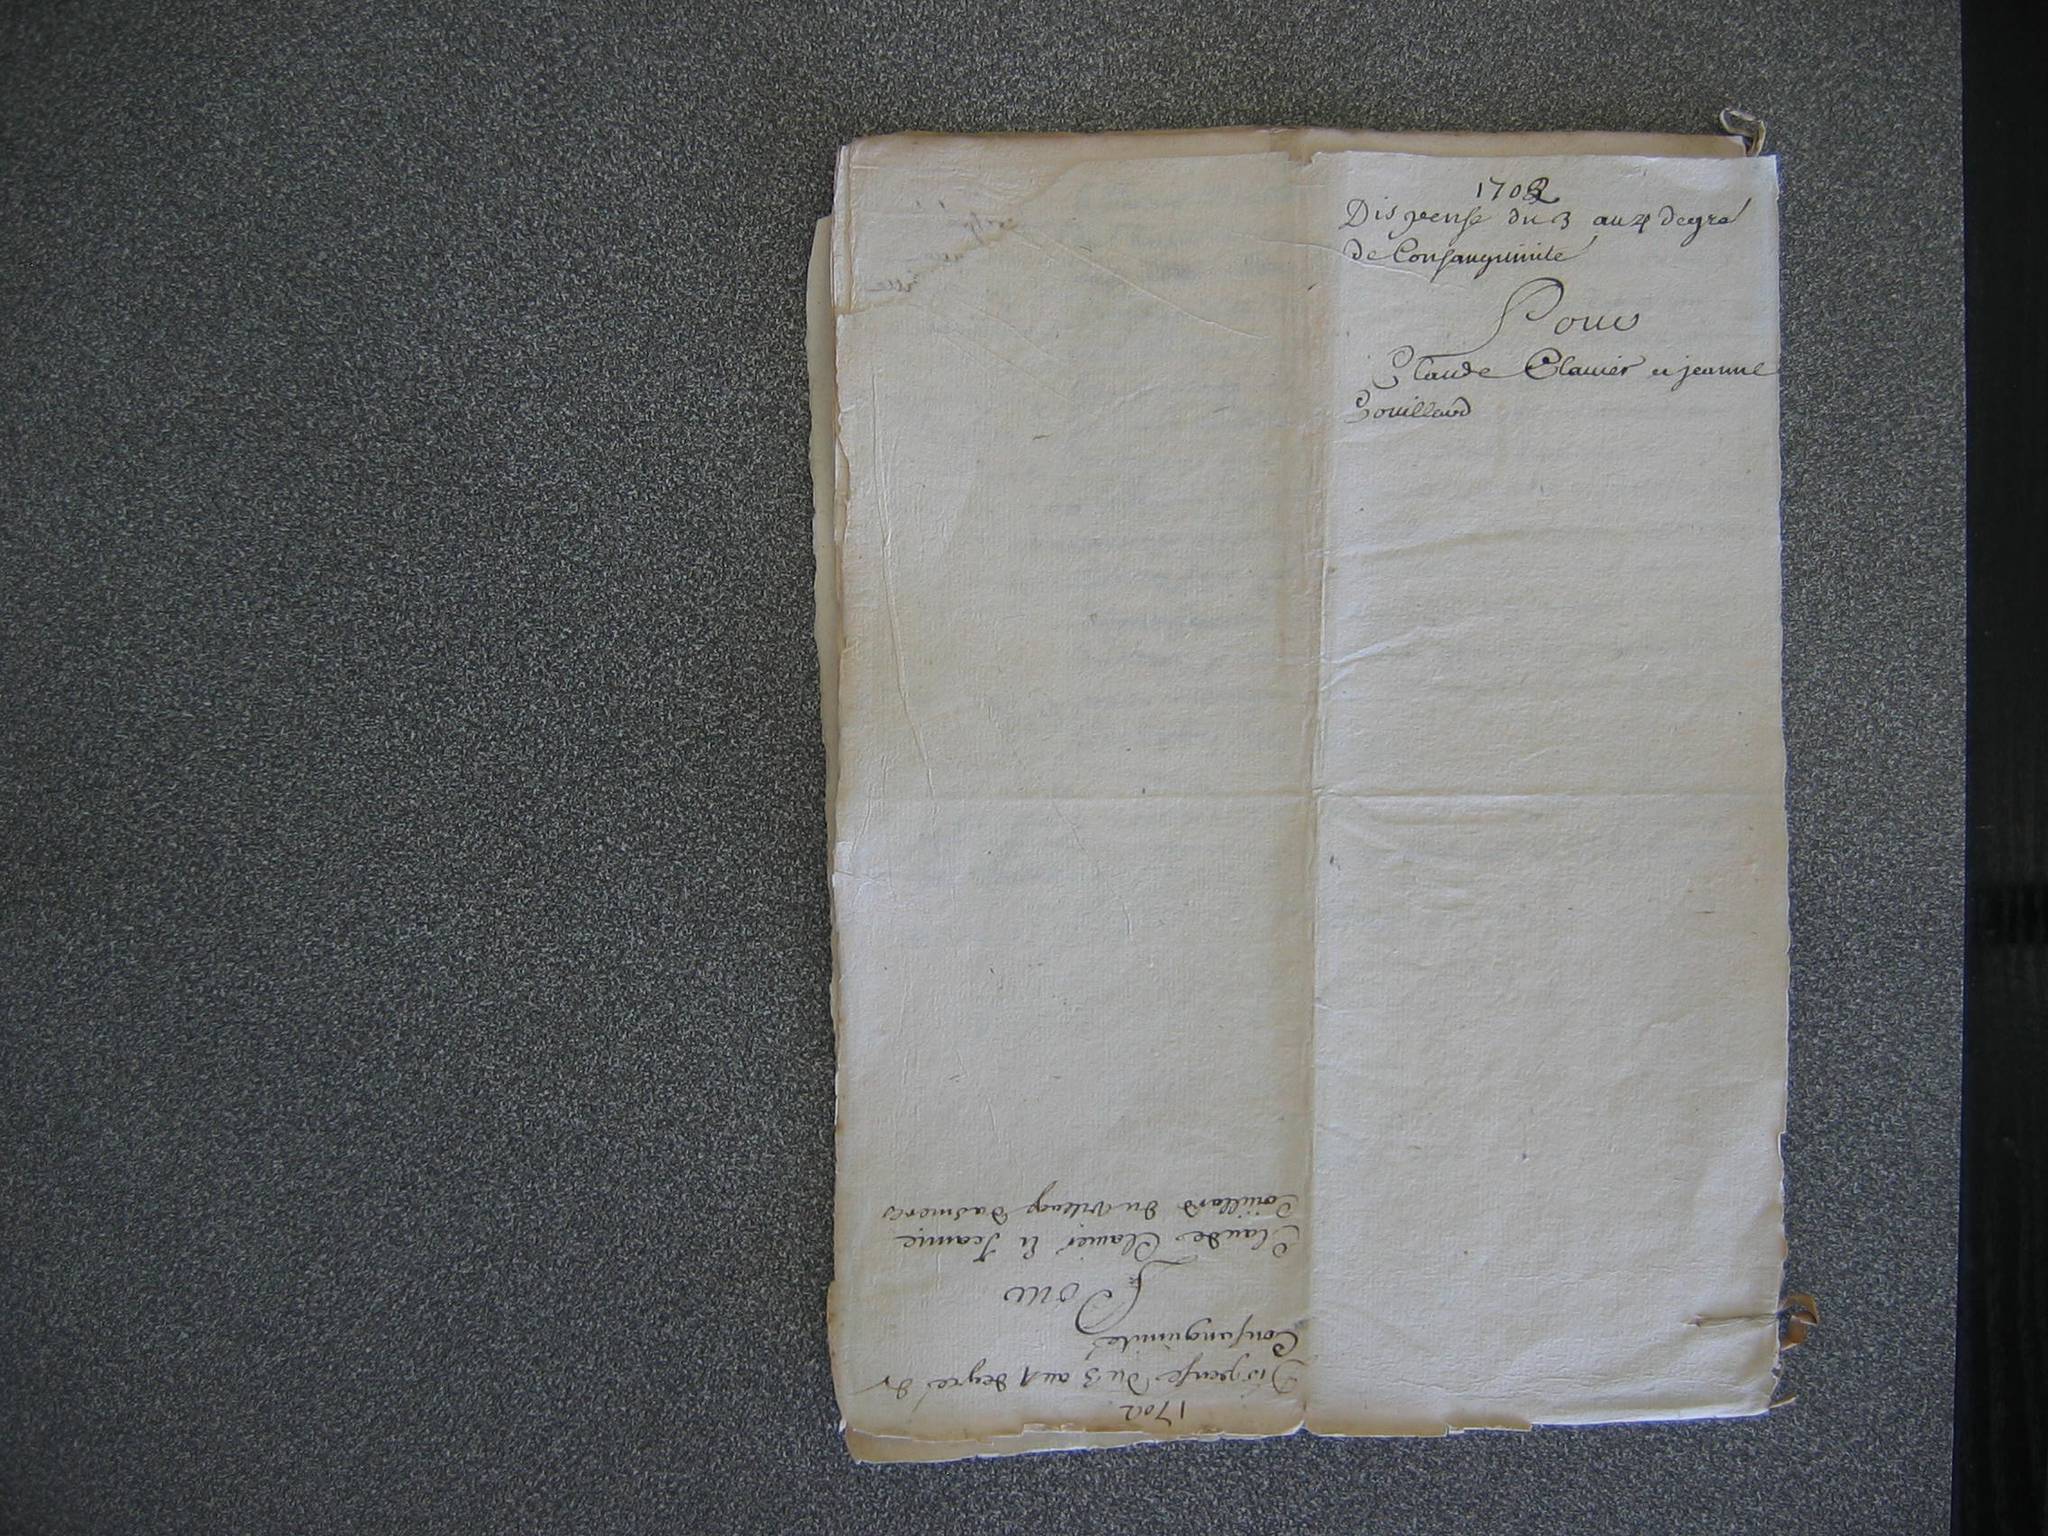 1702
Dispense du 3 au 4 degré
de Consanguinité
Pour
Claude Clavier et jeanne
Couillard
1702
Dispense du 3 au 4 degré de
Consanguinité
Pour
Claude Clavier et Jeanne
Couillard du village